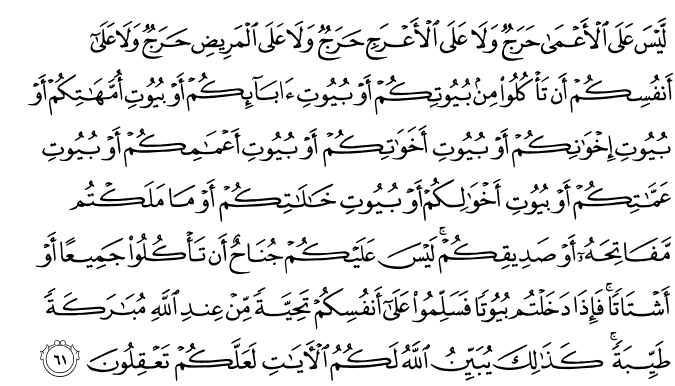 لَّيْسَ عَلَى ٱلْأَعْمَىٰ حَرَجٌ وَلَا عَلَى ٱلْأَعْرَجِ حَرَجٌ وَلَا عَلَى ٱلْمَرِيضِ حَرَجٌ وَلَا عَلَىٰٓ
أَنفُسِكُمْ أَن تَأْكُلُوا۟ مِنۢ بُيُوتِكُمْ أَوْ بُيُوتِ ءَابَآئِكُمْ أَوْ بُيُوتِ أُمَّهَٰتِكُمْ أَوْ
بُيُوتِ إِخْوَٰنِكُمْ أَوْ بُيُوتِ أَخَوَٰتِكُمْ أَوْ بُيُوتِ أَعْمَٰمِكُمْ أَوْ بُيُوتِ
عَمَّٰتِكُمْ أَوْ بُيُوتِ أَخْوَٰلِكُمْ أَوْ بُيُوتِ خَٰلَٰتِكُمْ أَوْ مَا مَلَكْتُم
مَّفَاتِحَهُۥٓ أَوْ صَدِيقِكُمْ ۚ لَيْسَ عَلَيْكُمْ جُنَاحٌ أَن تَأْكُلُوا۟ جَمِيعًا أَوْ
أَشْتَاتًا ۚ فَإِذَا دَخَلْتُم بُيُوتًا فَسَلِّمُوا۟ عَلَىٰٓ أَنفُسِكُمْ تَحِيَّةً مِّنْ عِندِ ٱللَّهِ مُبَٰرَكَةً
طَيِّبَةً ۚ كَذَٰلِكَ يُبَيِّنُ ٱللَّهُ لَكُمُ ٱلْءَايَٰتِ لَعَلَّكُمْ تَعْقِلُونَ ٦١